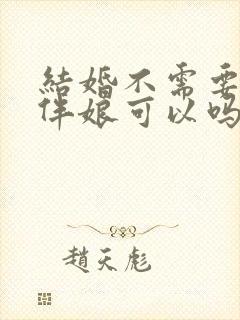 結婚不需要
伴娘可以吗
趙天彪